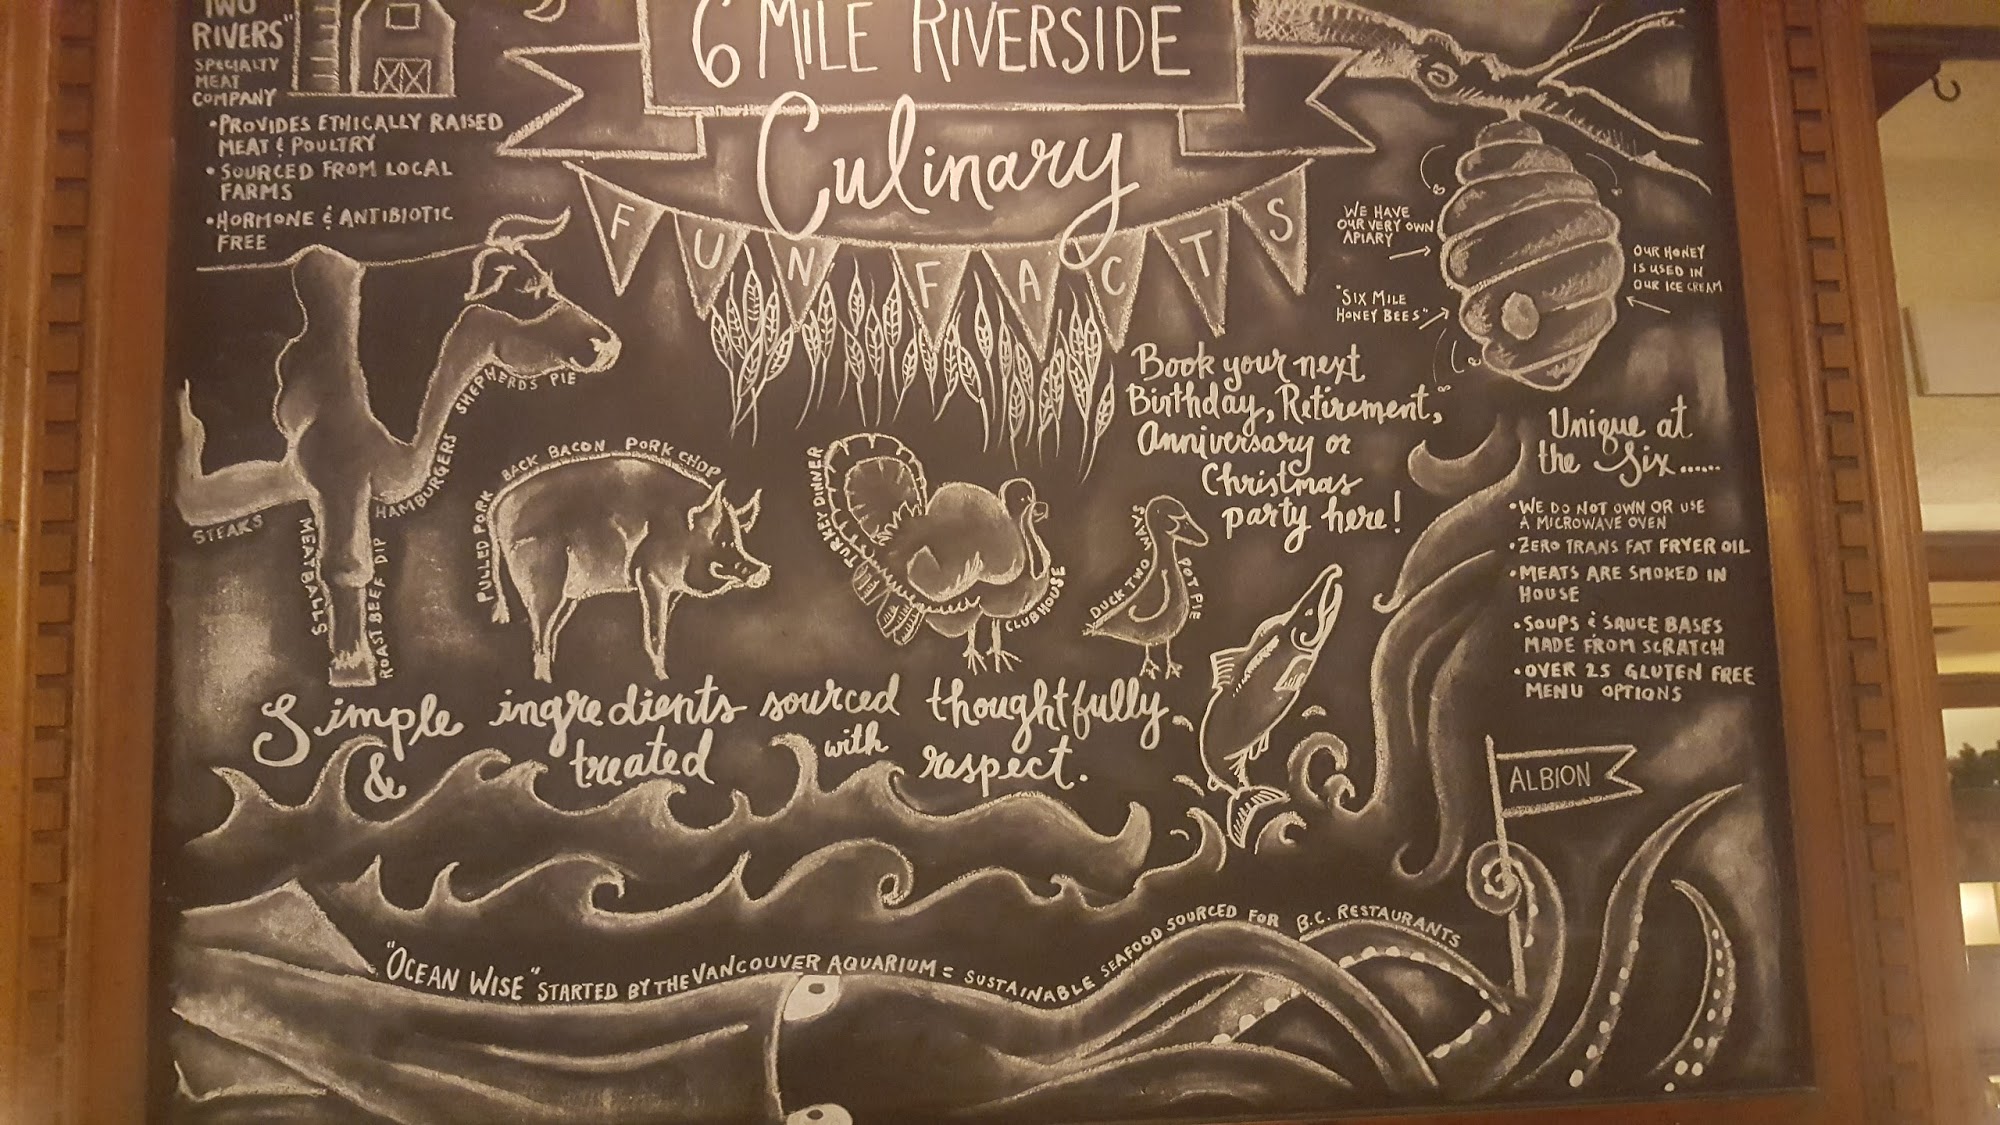 TWO
RIVERS"
SPECIALTY
MEAT
COMPANY
• PROVIDES ETHICALLY RAISED
MEAT & POULTRY
• SOURCED FROM LOCAL
FARMS
• HORMONE & ANTIBIOTIC
FREE
6 MILE RIVERSIDE
Culinary
FUN FACTS
WE HAVE
OUR VERY OWN
APIARY
"SIX MILE
HONEY BEES"
OUR HONEY
IS USED IN
OUR ICE CREAM
Book your next
Birthday, Retirement,
Anniversary or
Christmas
party here!
Unique at
the Six......
• WE DO NOT OWN OR USE
A MICROWAVE OVEN
• ZERO TRANS FAT FRYER OIL
• MEATS ARE SMOKED IN
HOUSE
• SOUPS & SAUCE BASES
MADE FROM SCRATCH
• OVER 25 GLUTEN FREE
MENU OPTIONS
STEAKS
MEATBALLS
ROAST BEEF DIP
HAMBURGERS
SHEPHERDS PIE
PULLED PORK
BACK BACON
PORK CHOP
TURKEY DINNER
CLUBHOUSE
DUCK TWO WAYS
POT PIE
Simple ingredients sourced thoughtfully
& treated with respect.
ALBION
"OCEAN WISE" STARTED BY THE VANCOUVER AQUARIUM = SUSTAINABLE SEAFOOD SOURCED FOR B.C. RESTAURANTS